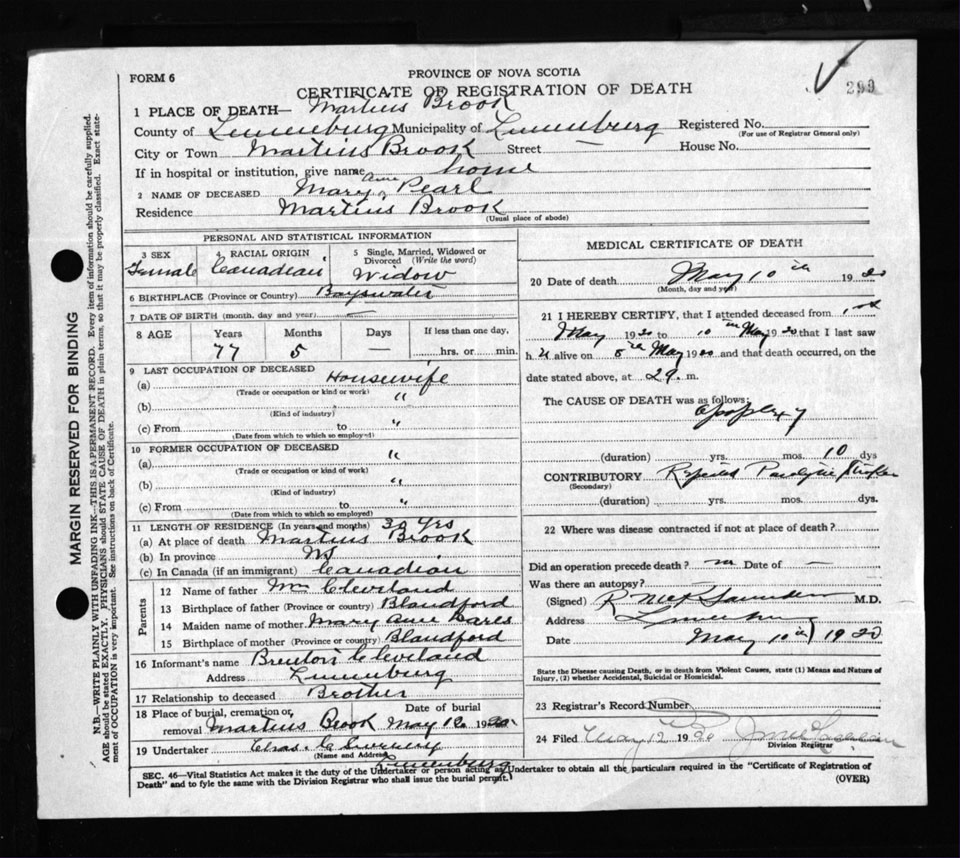 FORM 6
PROVINCE OF NOVA SCOTIA
CERTIFICATE OF REGISTRATION OF DEATH
299
1 PLACE OF DEATH— Martins Brook
County of Lunenburg Municipality of Lunenburg Registered No.
(For use of Registrar General only)
City or Town Martins Brook Street — House No.
If in hospital or institution, give name home
2 NAME OF DECEASED Mary Ann Pearl
Residence Martins Brook
(Usual place of abode)
PERSONAL AND STATISTICAL INFORMATION
3 SEX 4 RACIAL ORIGIN 5 Single, Married, Widowed or Divorced (Write the word)
Female Canadian Widow
6 BIRTHPLACE (Province or Country) Bayswater
7 DATE OF BIRTH (month, day and year) —
8 AGE Years Months Days If less than one day,
77 5 — hrs. or min.
9 LAST OCCUPATION OF DECEASED
(a) Housewife
(Trade or occupation or kind or work)
(b) "
(Kind of industry)
(c) From to "
(Date from which to which so employed)
10 FORMER OCCUPATION OF DECEASED
(a) "
(Trade or occupation or kind of work)
(b) "
(Kind of industry)
(c) From to "
(Date from which to which so employed)
11 LENGTH OF RESIDENCE (In years and months) 30 Yrs
(a) At place of death Martins Brook
(b) In province NS
(c) In Canada (if an immigrant) Canadian
Parents
12 Name of father Wm Cleveland
13 Birthplace of father (Province or country) Blandford
14 Maiden name of mother Mary Ann
15 Birthplace of mother (Province or country) Blandford
16 Informant's name Brenton Cleveland
Address Lunenburg
17 Relationship to deceased Brother
18 Place of burial, cremation or removal Martins Brook Date of burial May 12 1920
19 Undertaker Chas.
(Name and Address)
Lunenburg
MEDICAL CERTIFICATE OF DEATH
20 Date of death May 10th 1920
(Month, day and year)
21 I HEREBY CERTIFY, that I attended deceased from 1st
May 1920 to 10th May 1920 that I last saw
h er alive on 8th May 1920 and that death occurred, on the
date stated above, at m.
The CAUSE OF DEATH was as follows:
Apoplexy
(duration) yrs. mos. 10 dys
CONTRIBUTORY Paralytic
(Secondary)
(duration) yrs. mos. dys.
22 Where was disease contracted if not at place of death?
Did an operation precede death? no Date of —
Was there an autopsy? —
(Signed) M.D.
Address Lunenburg
Date May 11th 1920
State the Disease causing Death, or in death from Violent Causes, state (1) Means and Nature of
Injury, (2) whether Accidental, Suicidal or Homicidal.
23 Registrar's Record Number
24 Filed May 12 1920
Division Registrar
SEC. 46—Vital Statistics Act makes it the duty of the Undertaker or person acting as Undertaker to obtain all the particulars required in the "Certificate of Registration of
Death" and to fyle the same with the Division Registrar who shall issue the burial permit.
(OVER)
MARGIN RESERVED FOR BINDING
N.B.—WRITE PLAINLY WITH UNFADING INK—THIS IS A PERMANENT RECORD. Every item of information should be carefully supplied.
AGE should be stated EXACTLY. PHYSICIANS should STATE CAUSE OF DEATH in plain terms, so that it may be properly classified. Exact state-
ment of OCCUPATION is very important. See instructions on back of Certificate.